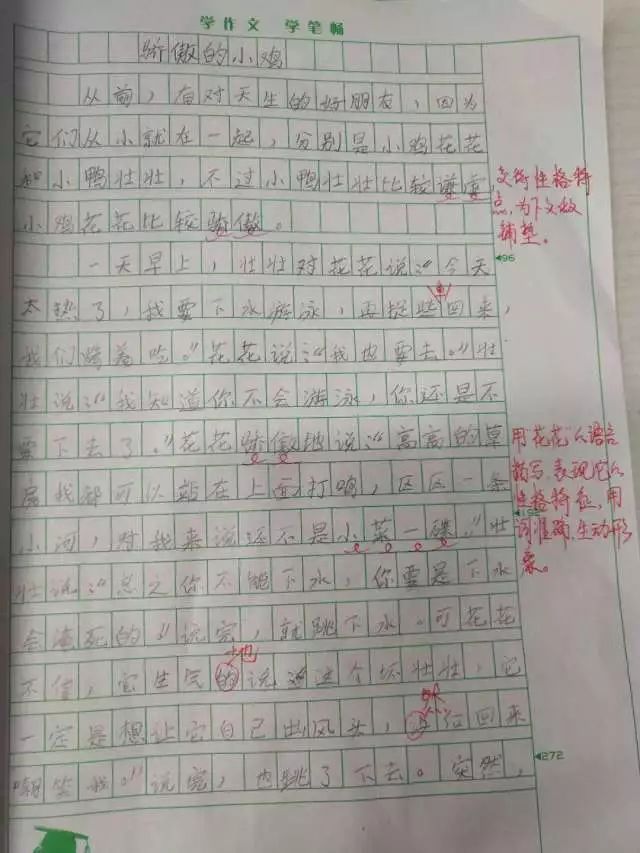 学作文 学笔畅
骄傲的小鸡
从前，有对天生的好朋友，因为
它们从小就在一起，分别是小鸡花花
和小鸭壮壮，不过小鸭壮壮比较谦虚，
小鸡花花比较骄傲。
交待性格特
点，为下文做
铺垫。
一天早上，壮壮对花花说：“今天
96
太热了，我要下水游泳，再捉些回来，
虫
我们蹲着吃。”花花说：“我也要去。”壮
壮说：“我知道你不会游泳，你还是不
要下去了。”花花骄傲地说：“高高的草
房我都可以站在上面打鸣，区区一条
小河，对我来说还不是小菜一碟。”壮
用“花花”的语言
描写，表现它的
性格特征，用
词准确，生动形
象。
壮说：“总之你不能下水，你要是下水
会淹死的。”说完，就跳下水。可花花
不信，它生气的说：“这个坏壮壮，它
地
一定是想让它自己出风头，
回来
嘲笑我。”说完，也跳了下去。突然，
272